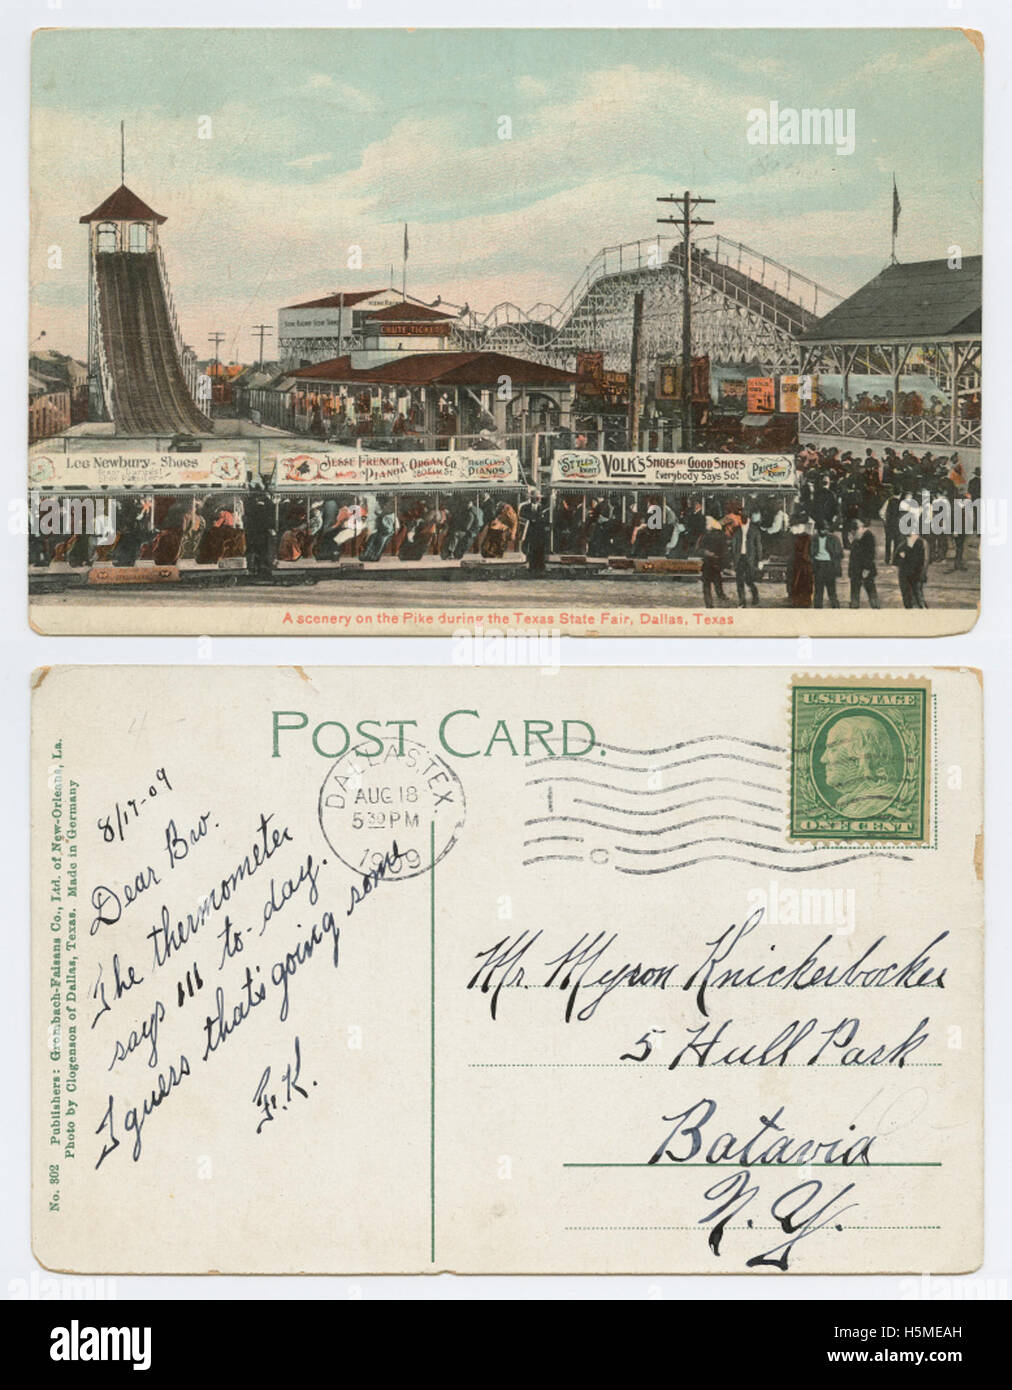 CHUTE TICKETS
Lee Newbury-Shoes
JESSE FRENCH
PIANO & ORGAN CO.
HIGH CLASS
PIANOS
STYLES
RIGHT
VOLK'S SHOES ARE GOOD SHOES
Everybody Says So!
PRICES
RIGHT
A scenery on the Pike during the Texas State Fair, Dallas, Texas
POST CARD.
U.S. POSTAGE
ONE CENT
DALLAS, TEX.
AUG 18
5 30 PM
1909
No. 302 Publishers: Grombach-Faisans Co., Ltd. of New-Orleans, La.
Photo by Clogenson of Dallas, Texas. Made in Germany
8/17-09
Dear Bro.
The thermometer
says 111 to-day.
I guess that's going some
F.K.
Mr. Myron Knickerbocker
5 Hull Park
Batavia
N.Y.
alamy
alamy
Image ID: H5MEAH
www.alamy.com